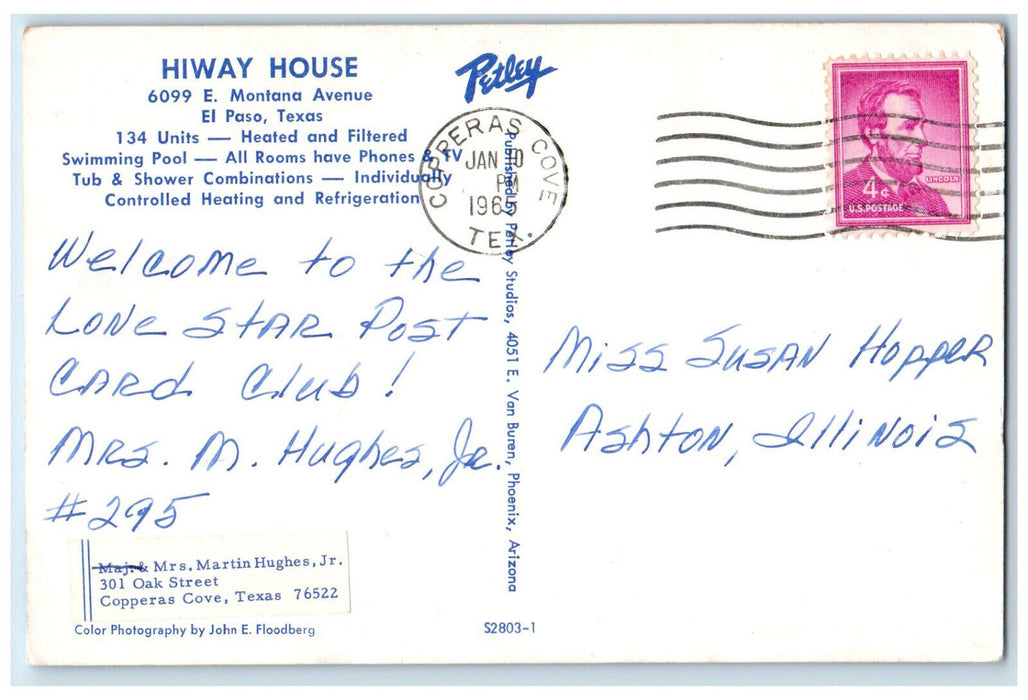 HIWAY HOUSE
6099 E. Montana Avenue
El Paso, Texas
134 Units — Heated and Filtered
Swimming Pool — All Rooms have Phones & TV
Tub & Shower Combinations — Individually
Controlled Heating and Refrigeration
Petley
COPPERAS COVE
JAN 10
PM
1965
TEX.
LINCOLN
4¢
U.S. POSTAGE
Welcome to the
Lone Star Post
Card Club!
Mrs. M. Hughes, Jr.
#295
Miss Susan Hopper
Ashton, Illinois
Published by Petley Studios, 4051 E. Van Buren, Phoenix, Arizona
Maj. & Mrs. Martin Hughes, Jr.
301 Oak Street
Copperas Cove, Texas 76522
Color Photography by John E. Floodberg
S2803-1